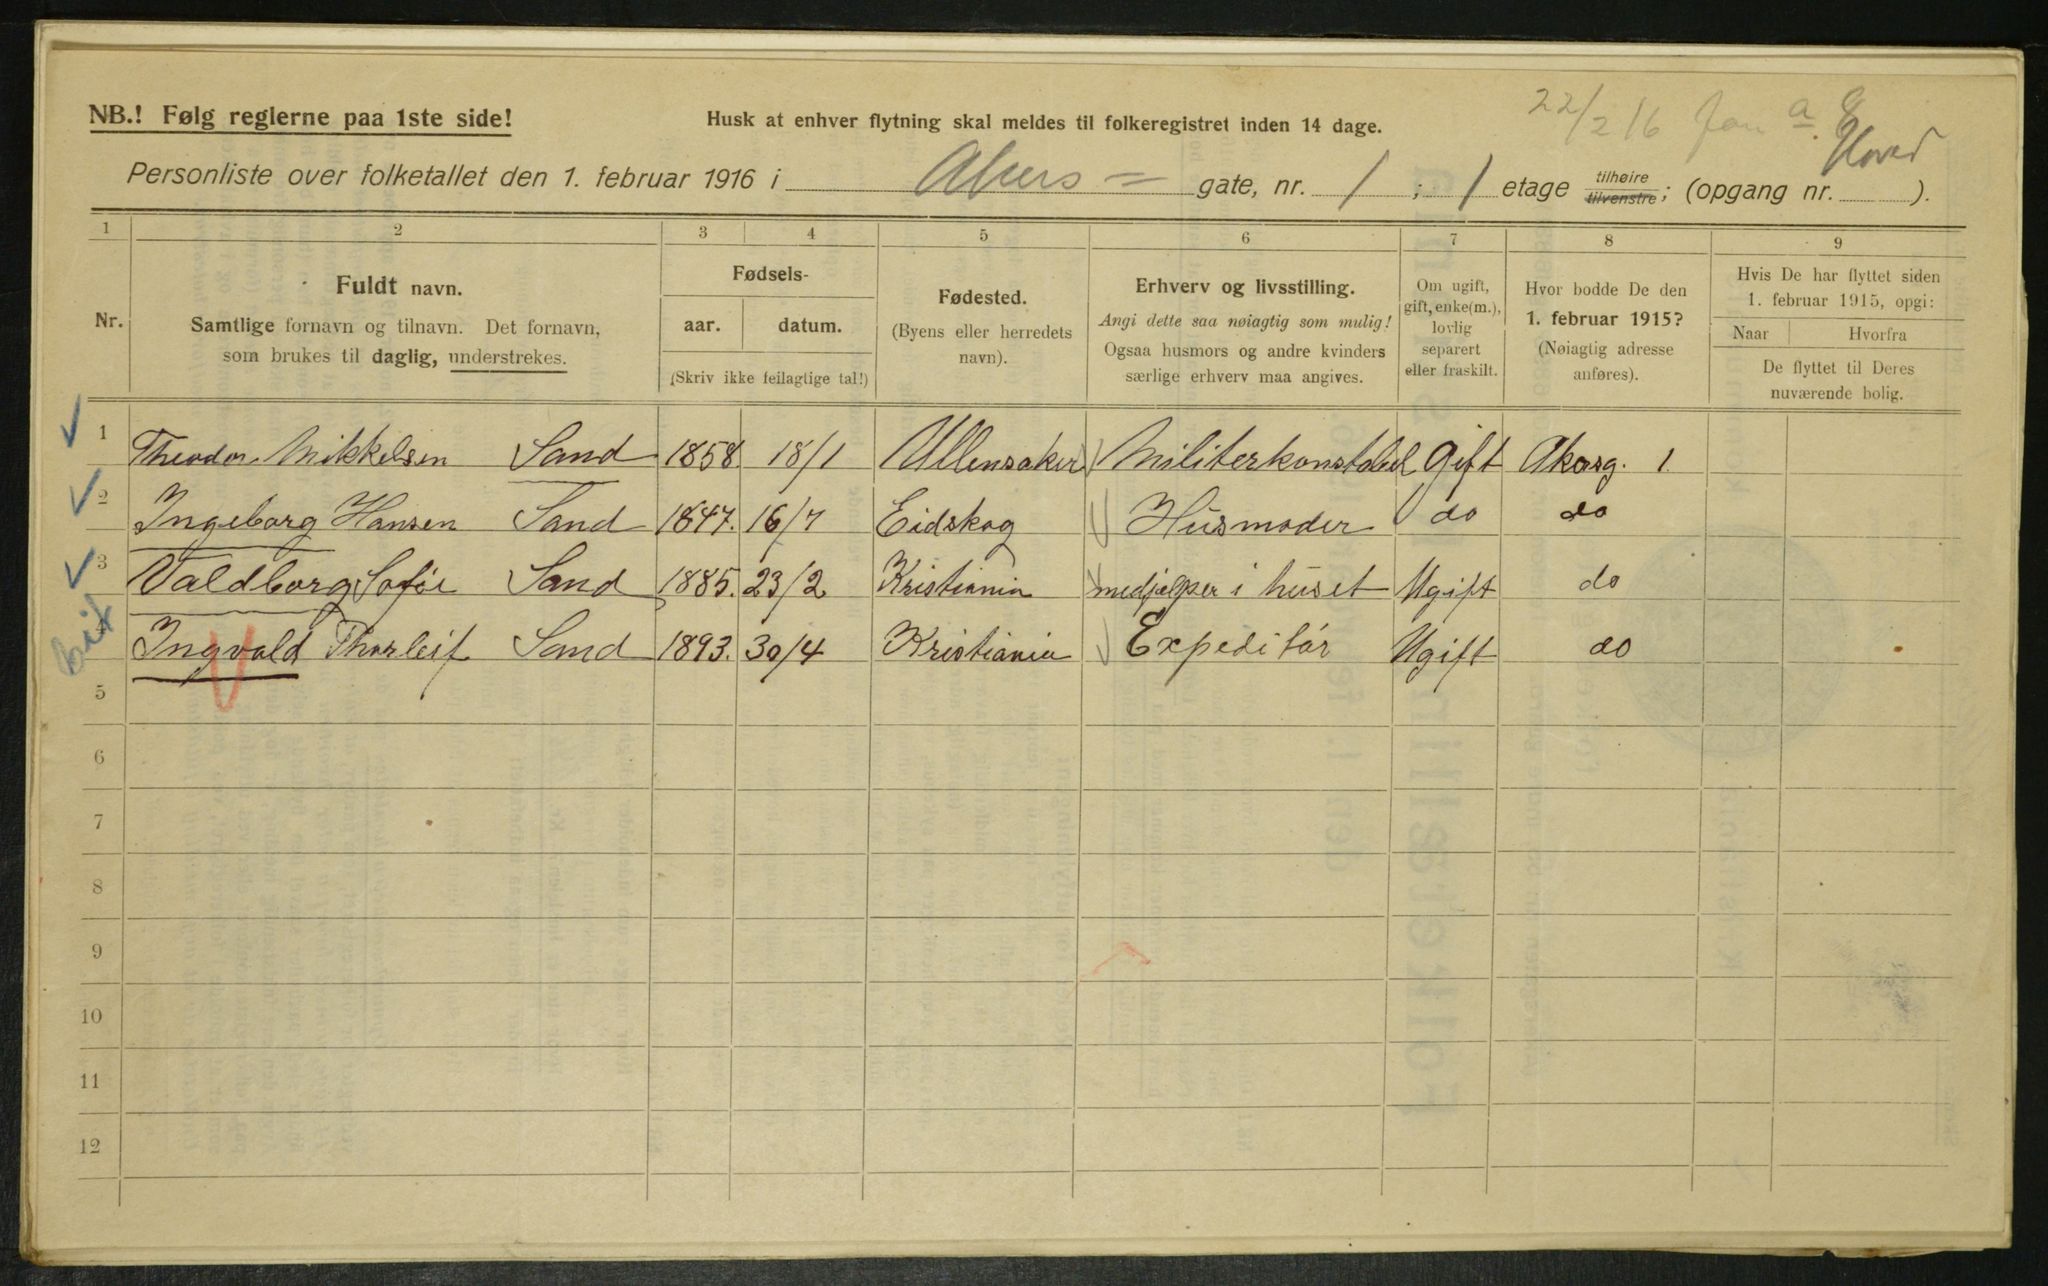 NB.! Følg reglerne paa 1ste side!
Husk at enhver flytning skal meldes til folkeregistret inden 14 dage.
22/2 16
Personliste over folketallet den 1. februar 1916 i Akers = gate, nr. 1 ; 1 etage tilhøire tilvenstre; (opgang nr. ).
1 2 3 4 5 6 7 8 9
Nr.
Fuldt navn.
Samtlige fornavn og tilnavn. Det fornavn,
som brukes til daglig, understrekes.
Fødsels-
aar. datum.
(Skriv ikke feilagtige tal!)
Fødested.
(Byens eller herredets
navn).
Erhverv og livsstilling.
Angi dette saa nøiagtig som mulig!
Ogsaa husmors og andre kvinders
særlige erhverv maa angives.
Om ugift,
gift, enke(m.),
lovlig
separert
eller fraskilt.
Hvor bodde De den
1. februar 1915?
(Nøiagtig adresse
anføres).
Hvis De har flyttet siden
1. februar 1915, opgi:
Naar Hvorfra
De flyttet til Deres
nuværende bolig.
1 Theodor Mikkelsen Sand 1858. 18/1 Ullensaker Militerkonstabel Gift Akersg. 1.
2 Ingeborg Hansen Sand 1847. 16/7 Eidskog Husmoder do do
3 Valdborg Sofie Sand 1885. 23/2 Kristiania medjælper i huset Ugift do
Ingvald Thorleif Sand 1893. 30/4 Kristiania Expeditør Ugift do
5
6
7
8
9
10
11
12